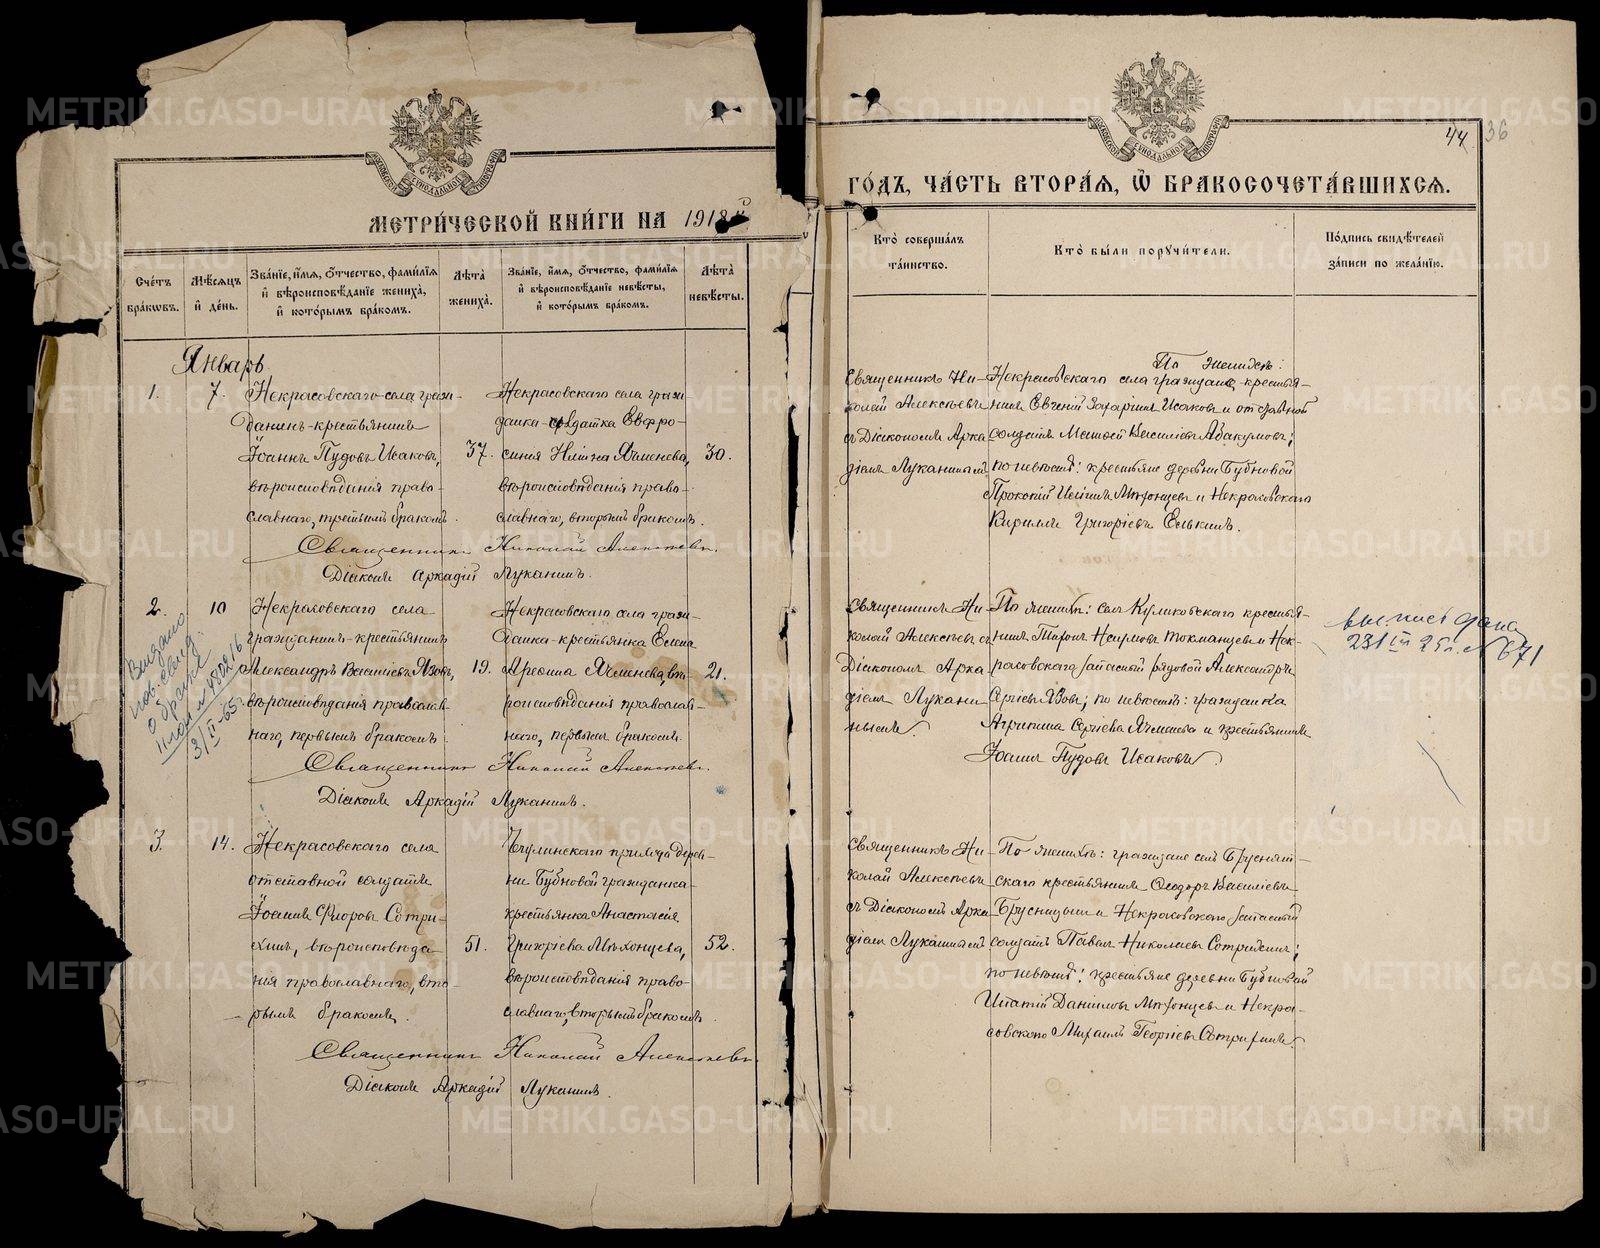 МЕТРИ́ЧЕСКОЙ КНИ́ГИ НА 1918й
ГО́ДЪ, ЧА́СТЬ ВТОРА́Я, Ѿ БРАКОСОЧЕТА́ВШИХСЯ.
44
36
Сче́тъ бра́ковъ.
Мѣ́сяцъ и҆ де́нь.
Зва́нїе, и҆́мя, ѻ҆́тчество, фами́лїя и҆ вѣроисповѣ́данїе жениха̀, и҆ кото́рымъ бра́комъ.
Лѣ́та жениха̀.
Зва́нїе, и҆́мя, ѻ҆́тчество, фами́лїя и҆ вѣроисповѣ́данїе невѣ́сты, и҆ кото́рымъ бра́комъ.
Лѣ́та невѣ́сты.
Кто̀ соверша́лъ та́инство.
Кто̀ бы́ли поручи́тели.
По́дпись свидѣ́телей за́писи по жела́нїю.
Январь
1.
7.
Некрасовскаго села граж-
данинъ-крестьянинъ
Іоаннъ Пудовъ Исаковъ,
вѣроисповѣданія право-
славнаго, третьимъ бракомъ.
37.
Некрасовскаго села граж
данка-солдатка Евфро-
синія Ячменева,
вѣроисповѣданія право-
славнаго, вторымъ бракомъ.
30.
Священникъ Ни-
колай Алексѣевъ
съ Діакономъ Арка
діемъ Луканинымъ
По женихѣ:
Некрасовскаго села граждане крестья-
нинъ Евгеній Захаріинъ Исаковъ и отставной
солдатъ Матѳей Василіевъ Абакумовъ;
по невѣстѣ: крестьяне деревни Бубновой
Прокопій Мѣхонцевъ и Некрасовскаго
Кириллъ Григоріевъ Елькинъ.
Священникъ Николай Алексѣевъ.
Діаконъ Аркадій Луканинъ.
2.
10
Некрасовскаго села
гражданинъ-крестьянинъ
Александръ Василіевъ Язовъ,
вѣроисповѣданія православ-
наго, первымъ бракомъ.
19.
Некрасовскаго села граж
данка-крестьянка Елена
Ячменева, вѣ-
роисповѣданія православ-
наго, первымъ бракомъ.
21.
Священникъ Ни-
колай Алексѣевъ съ
Діакономъ Арка
діемъ Лукани
нымъ.
По женихѣ: села Куликовскаго крестья-
нинъ Токманцевъ и Нек-
расовскаго запасный рядовой Александръ
Сергіевъ Язовъ; по невѣстѣ: гражданка
Агрипина Сергіева Ячменева и крестьянинъ
Іоаннъ Пудовъ Исаковъ.
Священникъ Николай Алексѣевъ.
Діаконъ Аркадій Луканинъ.
Выдано
пов. свид.
о браке
3/II-65г
№ 671
3.
14.
Некрасовскаго села
отставной солдатъ
Іоаннъ Флоровъ Сотри-
хинъ, вѣроисповѣда-
нія православнаго, вто-
рымъ бракомъ.
51.
прихода дерев-
ни Бубновой гражданка-
крестьянка Анастасія
Григоріева Мѣхонцева,
вѣроисповѣданія право-
славнаго, вторымъ бракомъ.
52.
Священникъ Ни-
колай Алексѣевъ
съ Діакономъ Арка
діемъ Луканинымъ
По женихѣ: граждане села Бруснят-
скаго крестьянинъ Ѳеодоръ Василіевъ
Брусницынъ и Некрасовскаго запасный
солдатъ Павелъ Николаевъ Сотрихинъ;
по невѣстѣ: крестьяне деревни Бубновой
Ипатій Даніиловъ Мѣхонцевъ и Некра-
совскаго Михаилъ Георгіевъ Сотрихинъ.
Священникъ Николай Алексѣевъ.
Діаконъ Аркадій Луканинъ.
METRIKI.GASO-URAL.RU